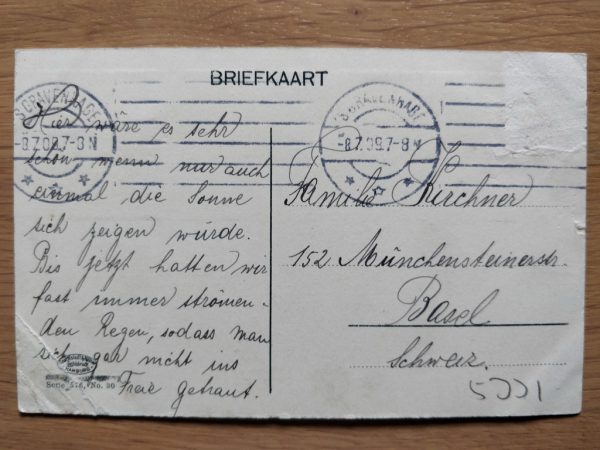 BRIEFKAART
'S GRAVENHAGE
-8.7.09.7-8 N
'S GRAVENHAGE
-8.7.09.7-8 N
Hier wäre es sehr
schön, wenn nur auch
einmal die Sonne
sich zeigen würde.
Bis jetzt hatten wir
fast immer strömen-
den Regen, sodass man
sich gar nicht ins
Freie getraut.
Familie Kirchner
152 Münchensteinerstr.
Basel
Schweiz.
HAMBURG
Serie 576, No. 30
5221